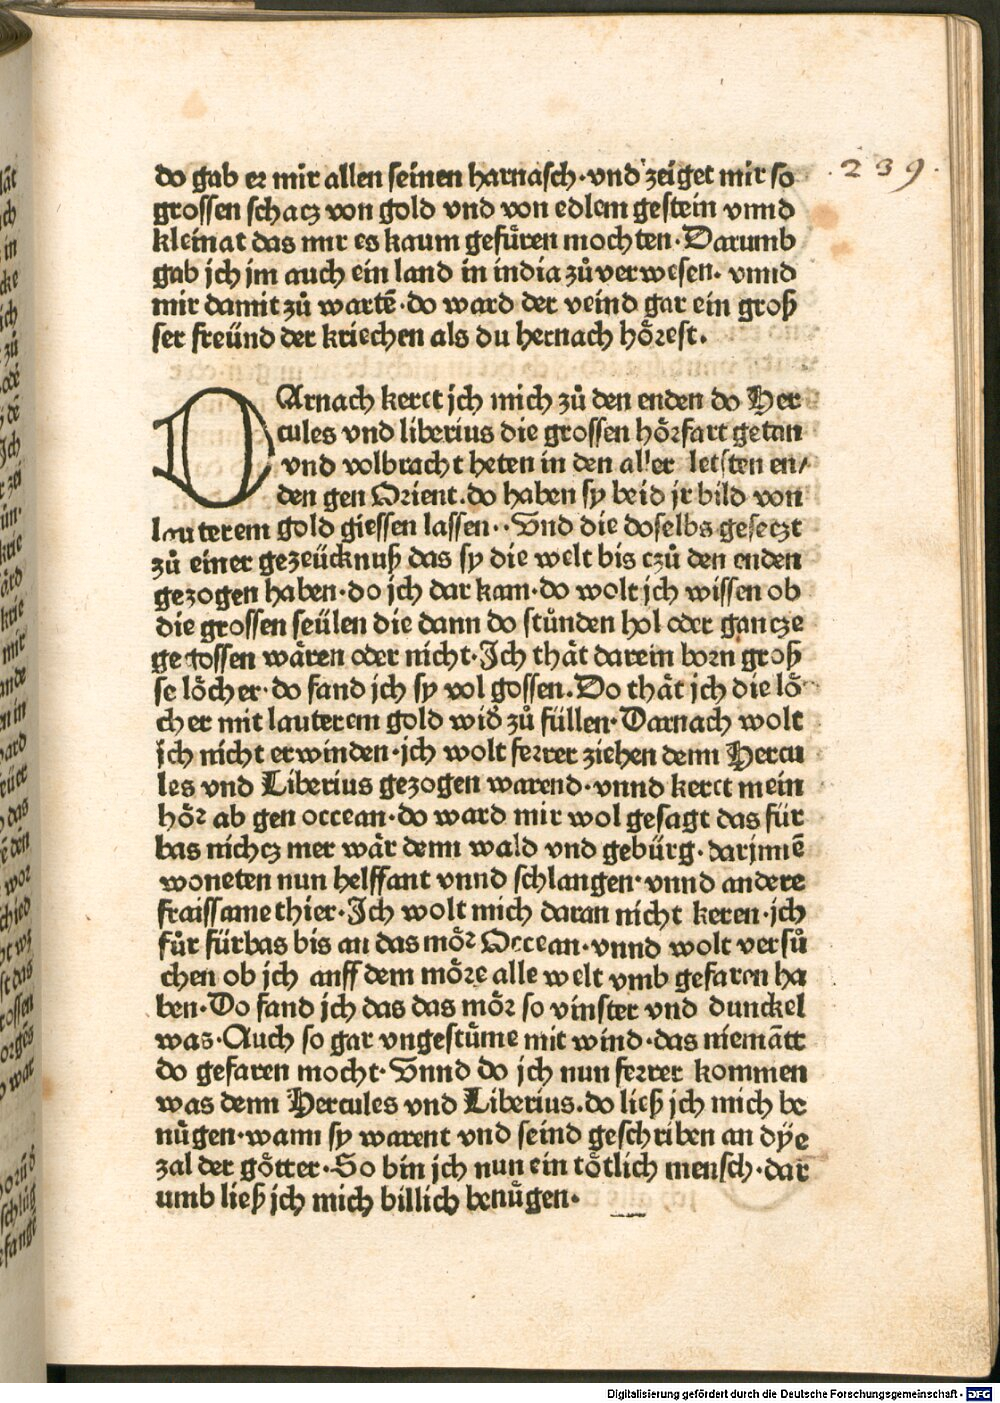 .239.
do gab er mir allen seinen harnasch·vnd zeiget mir so
grossen schacz von gold vnd von edlem gestein vnnd
kleinat das mir es kaum gefüren mochten·Darumb
gab jch jm auch ein land in india zůverwesen. vnnd
mir damit zů wartē·do ward der veind gar ein groß
ser freünd der kriechen als du hernach hörest.
DArnach keret jch mich zů den enden do Her
cules vnd liberius die grossen hörfart getan
vnd volbracht heten in den aller letsten en/
den gen Orient.do haben sy beid jr bild von
lauterem gold giessen lassen··Vnd die doselbs gesetzt
zů einer gezeücknuß das sy die welt bis czů den enden
gezogen haben·do jch dar kam·do wolt jch wissen ob
die grossen seülen die dann do stůnden hol oder gancze
gegossen wären oder nicht·Jch thät darein born groß
se löcher·do fand jch sy vol gossen.Do thät jch die lö
cher mit lauterem gold wid̕ zů füllen·Darnach wolt
jch nicht erwinden·jch wolt ferrer ziehen denn Hercu
les vnd Liberius gezogen warend·vnnd keret mein
hör ab gen occean·do ward mir wol gesagt das für
bas nichcz mer wär denn wald vnd gebürg·darjnnē
woneten nun helffant vnnd schlangen·vnnd andere
fraissame thier·Jch wolt mich daran nicht keren·jch
fůr fürbas bis an das mör Occean·vnnd wolt versů
chen ob jch auff dem möre alle welt vmb gefaren ha
ben·Do fand jch das das mör so vinster vnd dunckel
was·Auch so gar vngestüme mit wind·das niemātt
do gefaren mocht·Vnnd do jch nun ferrer kommen
was denn Hercules vnd Liberius.do ließ jch mich be
nügen·wann sy warent vnd seind geschriben an dye
zal der götter·So bin jch nun ein tötlich mensch·dar
umb ließ jch mich billich benügen·
Digitalisierung gefördert durch die Deutsche Forschungsgemeinschaft - DFG